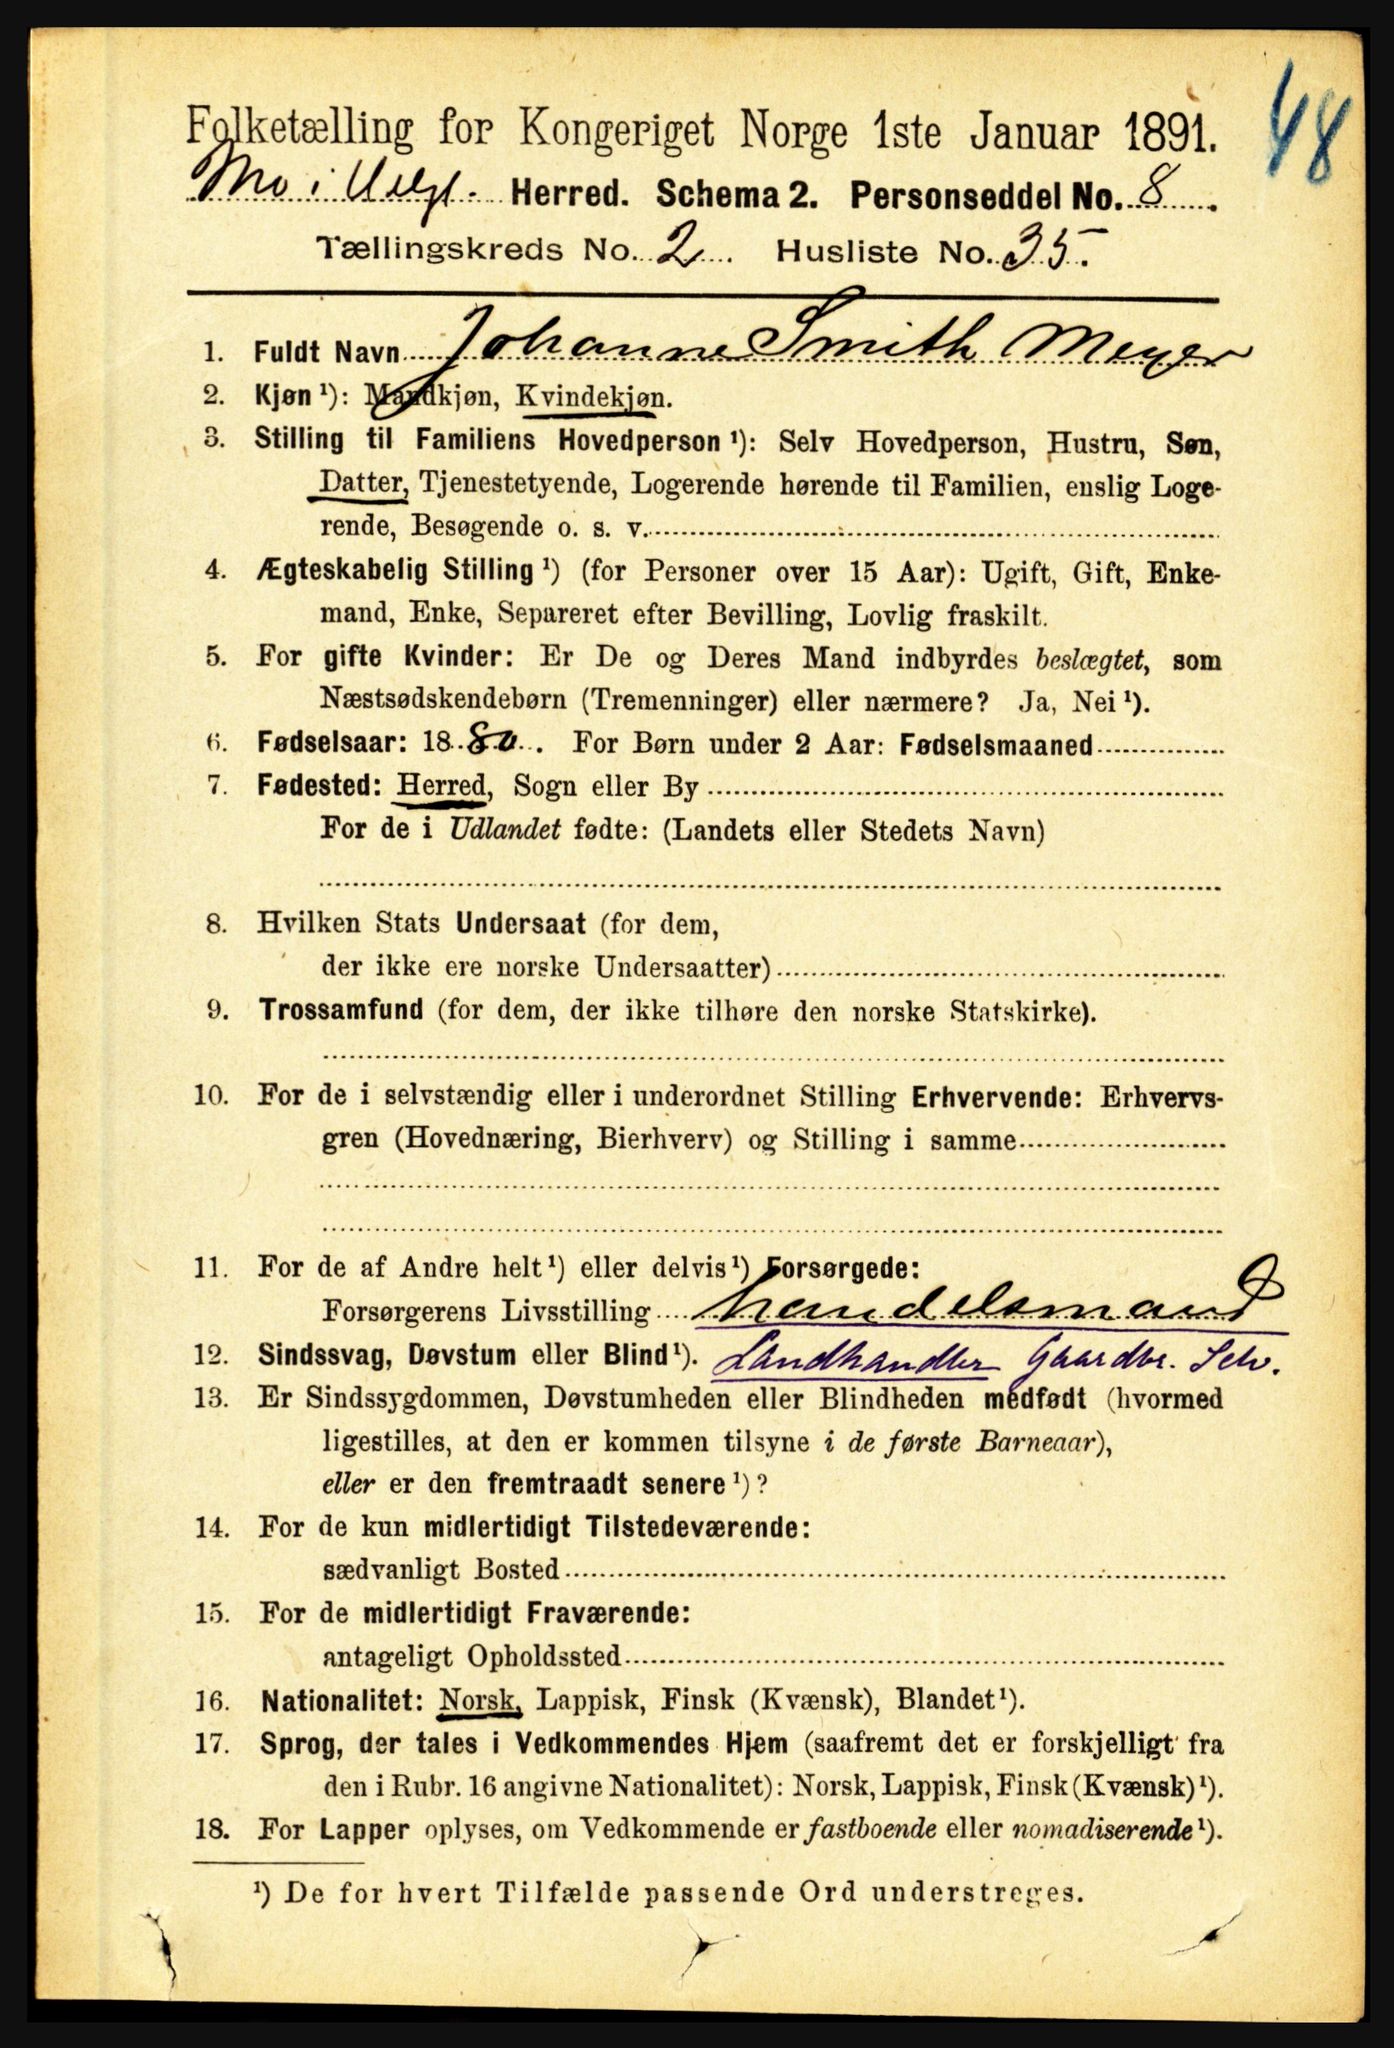 48
Folketælling for Kongeriget Norge 1ste Januar 1891.
Mo i Helgl. Herred. Schema 2. Personseddel No. 8.
Tællingskreds No. 2. Husliste No. 35.
1. Fuldt Navn Johanne Smith Meyer
2. Kjøn ¹): Mandkjøn, Kvindekjøn.
3. Stilling til Familiens Hovedperson ¹): Selv Hovedperson, Hustru, Søn,
Datter, Tjenestetyende, Logerende hørende til Familien, enslig Loge-
rende, Besøgende o. s. v.
4. Ægteskabelig Stilling ¹) (for Personer over 15 Aar): Ugift, Gift, Enke-
mand, Enke, Separeret efter Bevilling, Lovlig fraskilt.
5. For gifte Kvinder: Er De og Deres Mand indbyrdes beslægtet, som
Næstsødskendebørn (Tremenninger) eller nærmere? Ja, Nei ¹).
6. Fødselsaar: 1880. For Børn under 2 Aar: Fødselsmaaned
7. Fødested: Herred, Sogn eller By
For de i Udlandet fødte: (Landets eller Stedets Navn)
8. Hvilken Stats Undersaat (for dem,
der ikke ere norske Undersaatter)
9. Trossamfund (for dem, der ikke tilhøre den norske Statskirke).
10. For de i selvstændig eller i underordnet Stilling Erhvervende: Erhvervs-
gren (Hovednæring, Bierhverv) og Stilling i samme
11. For de af Andre helt ¹) eller delvis ¹) Forsørgede:
Forsørgerens Livsstilling handelsmand
12. Sindssvag, Døvstum eller Blind ¹). Landhandler Gaardbr. Selv.
13. Er Sindssygdommen, Døvstumheden eller Blindheden medfødt (hvormed
ligestilles, at den er kommen tilsyne i de første Barneaar),
eller er den fremtraadt senere ¹)?
14. For de kun midlertidigt Tilstedeværende:
sædvanligt Bosted
15. For de midlertidigt Fraværende:
antageligt Opholdssted
16. Nationalitet: Norsk, Lappisk, Finsk (Kvænsk), Blandet ¹).
17. Sprog, der tales i Vedkommendes Hjem (saafremt det er forskjelligt fra
den i Rubr. 16 angivne Nationalitet): Norsk, Lappisk, Finsk (Kvænsk) ¹).
18. For Lapper oplyses, om Vedkommende er fastboende eller nomadiserende ¹).
¹) De for hvert Tilfælde passende Ord understreges.